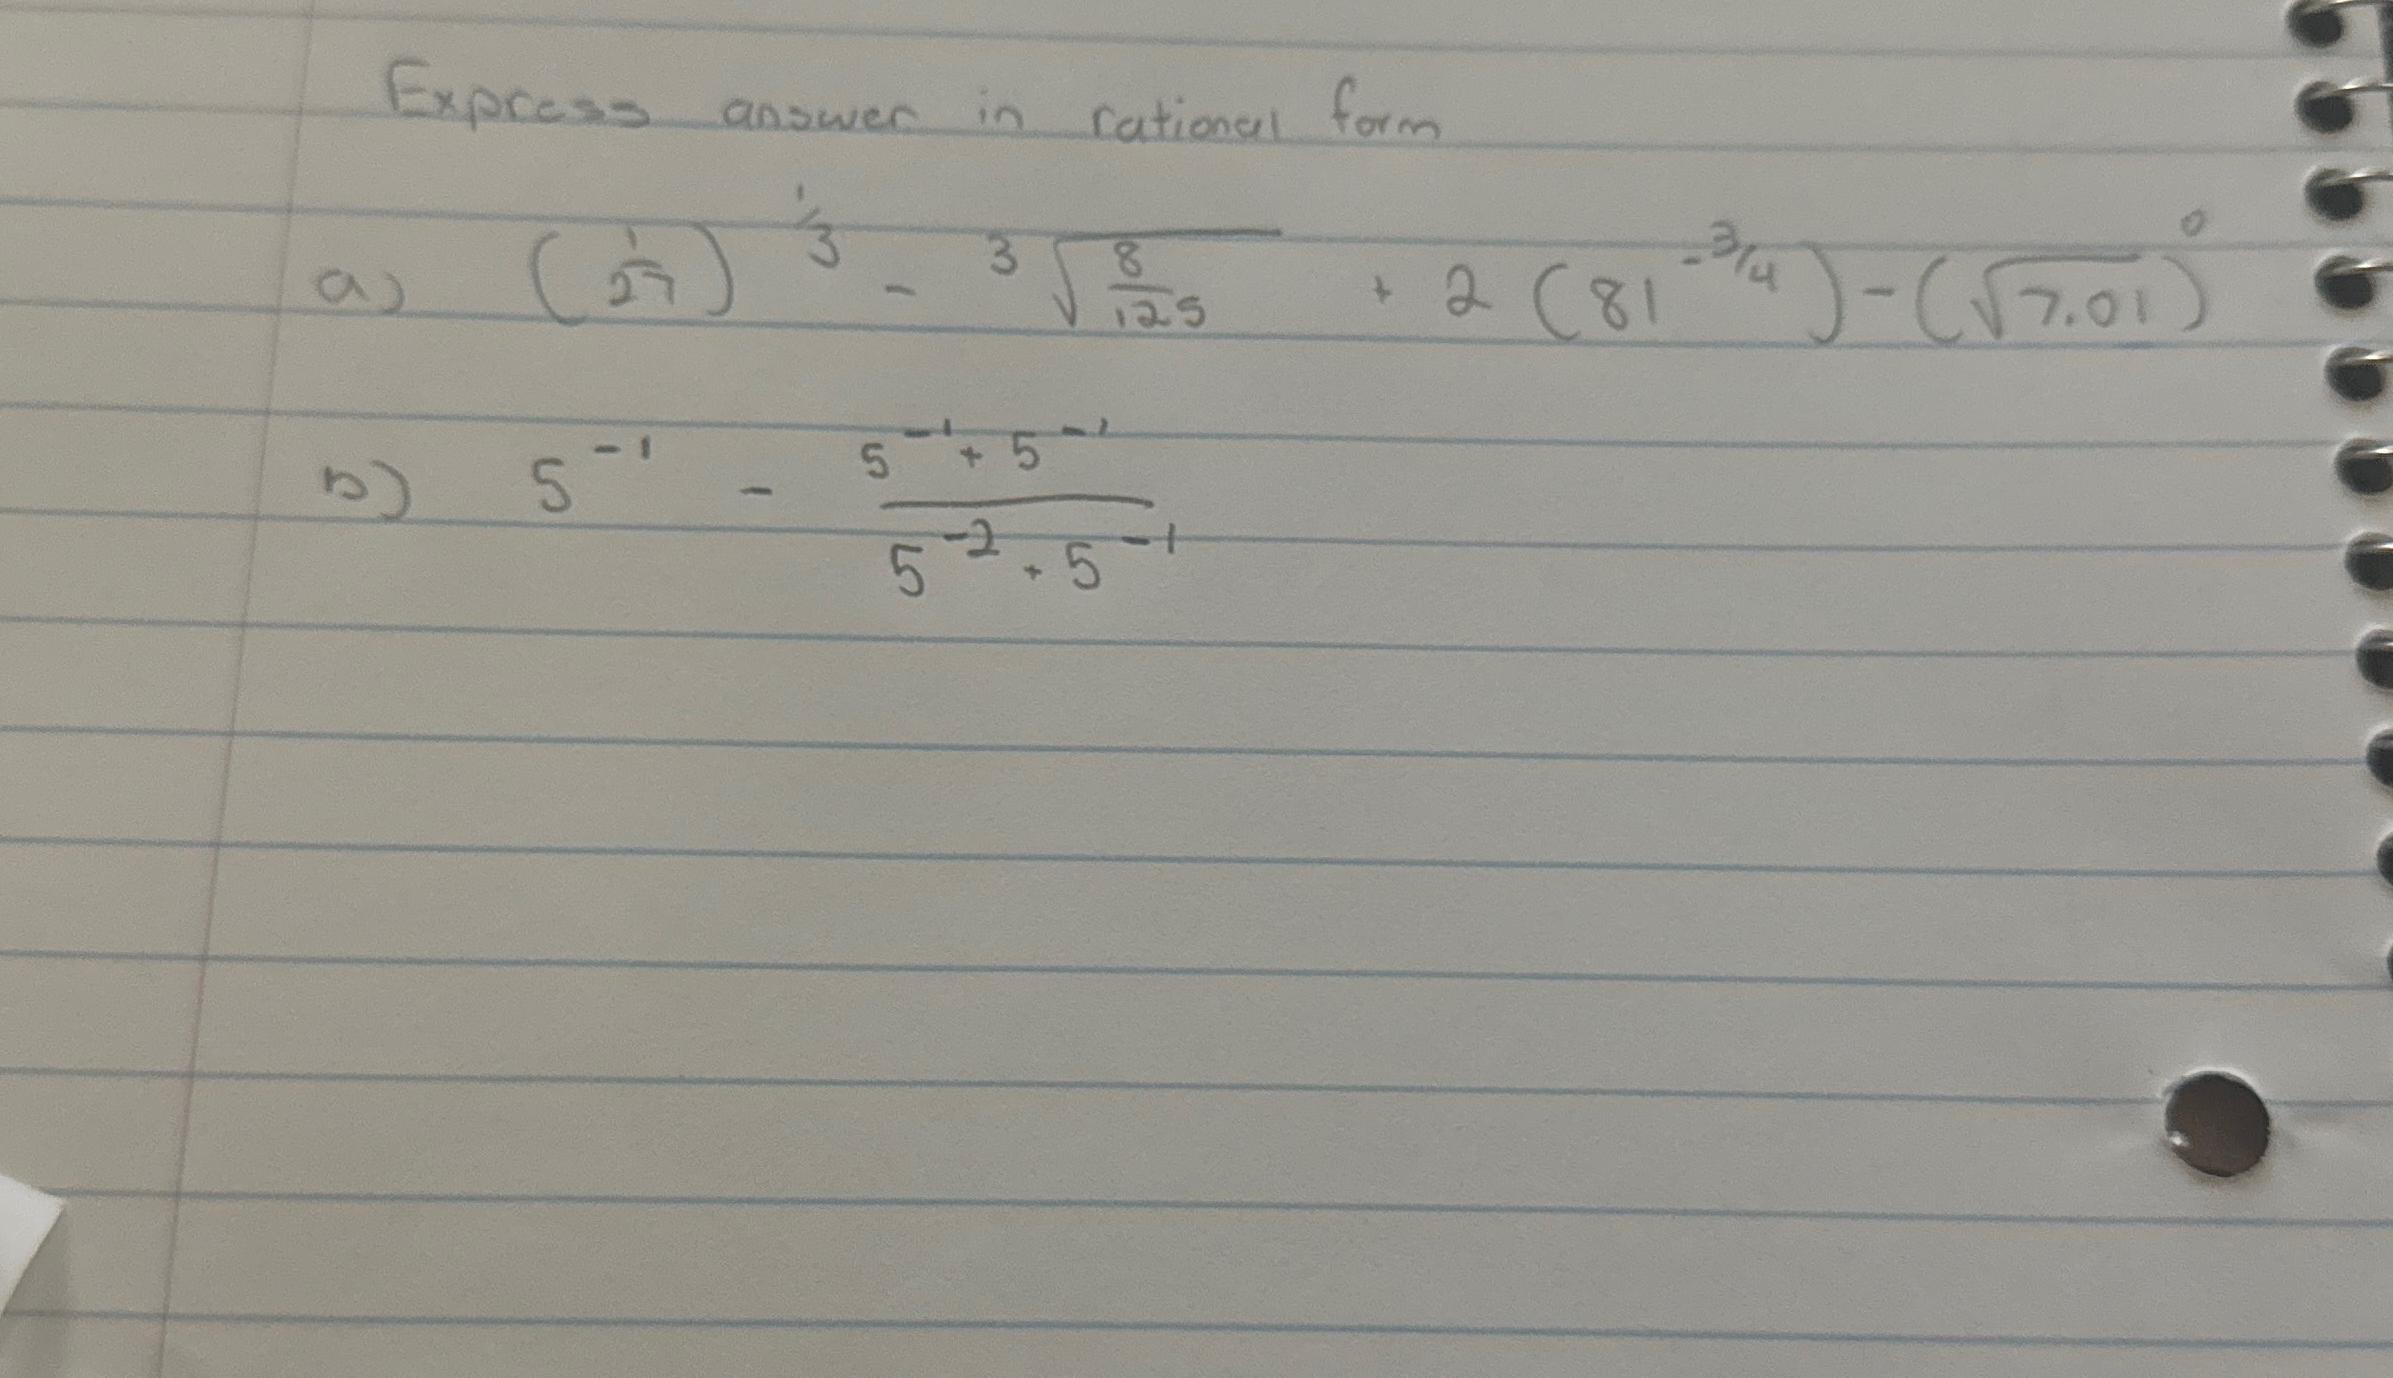 Express answer in rational form
a) (1/27)^1/3 - ³√(8/125) + 2(81^-3/4) - (√7.01)^0
b) 5^-1 - (5^-1 + 5^-1)/(5^-2 + 5^-1)